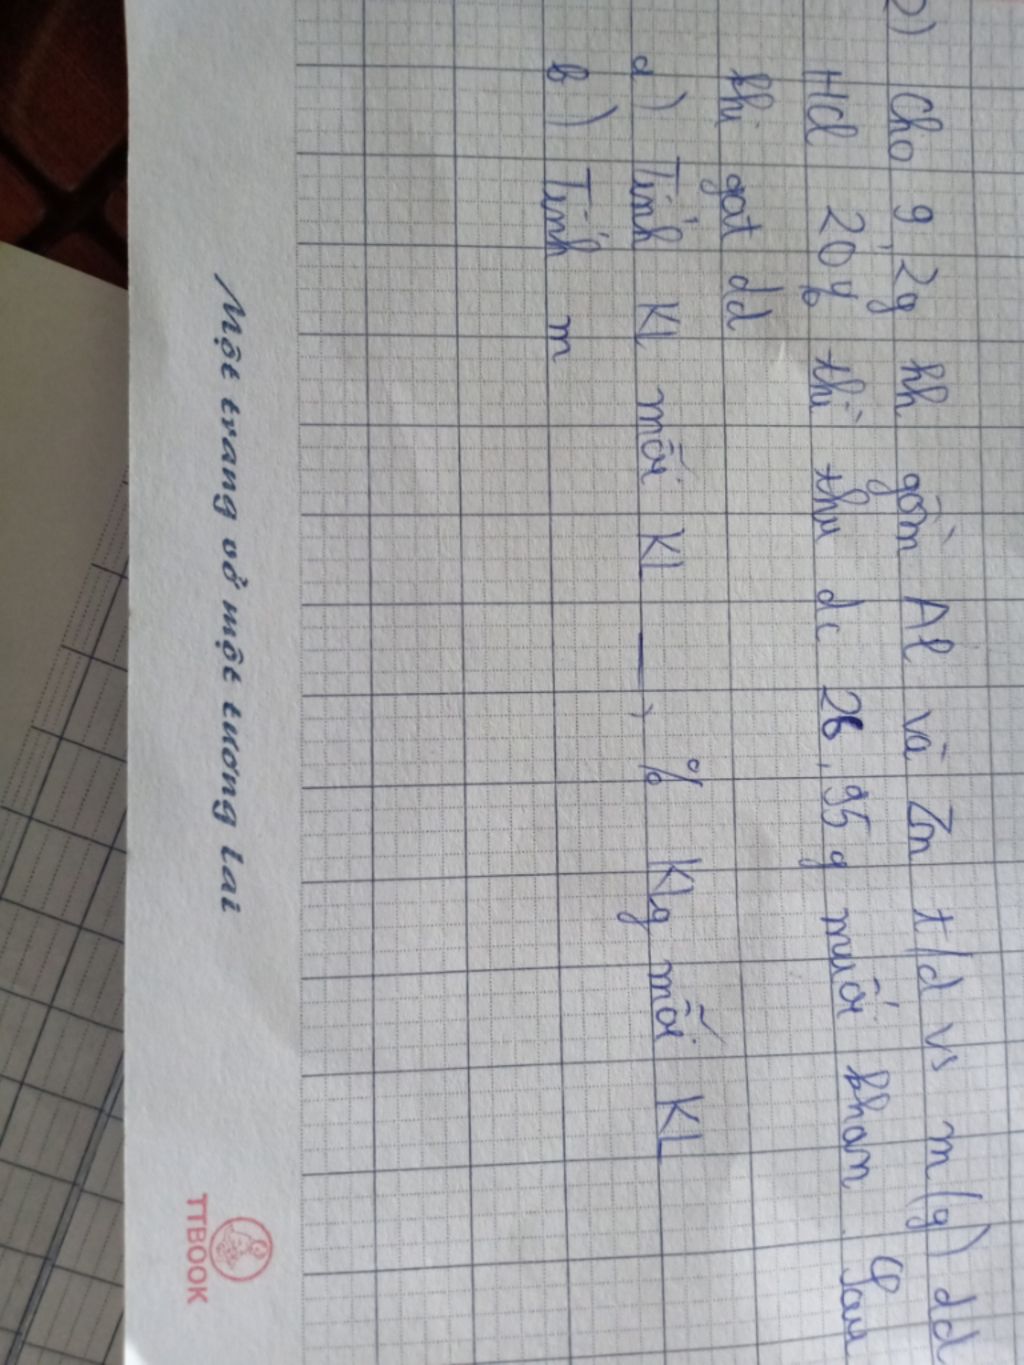 2) Cho 9,2g hh gồm Al và Zn t/d vs m(g) dd
HCl 20% thì thu dc 26,95g muối khan. Sau
khi gat dd
a) Tính KL mỗi KL → % Klg mỗi KL
b) Tính m
Một trang vở một tương lai
TTBOOK